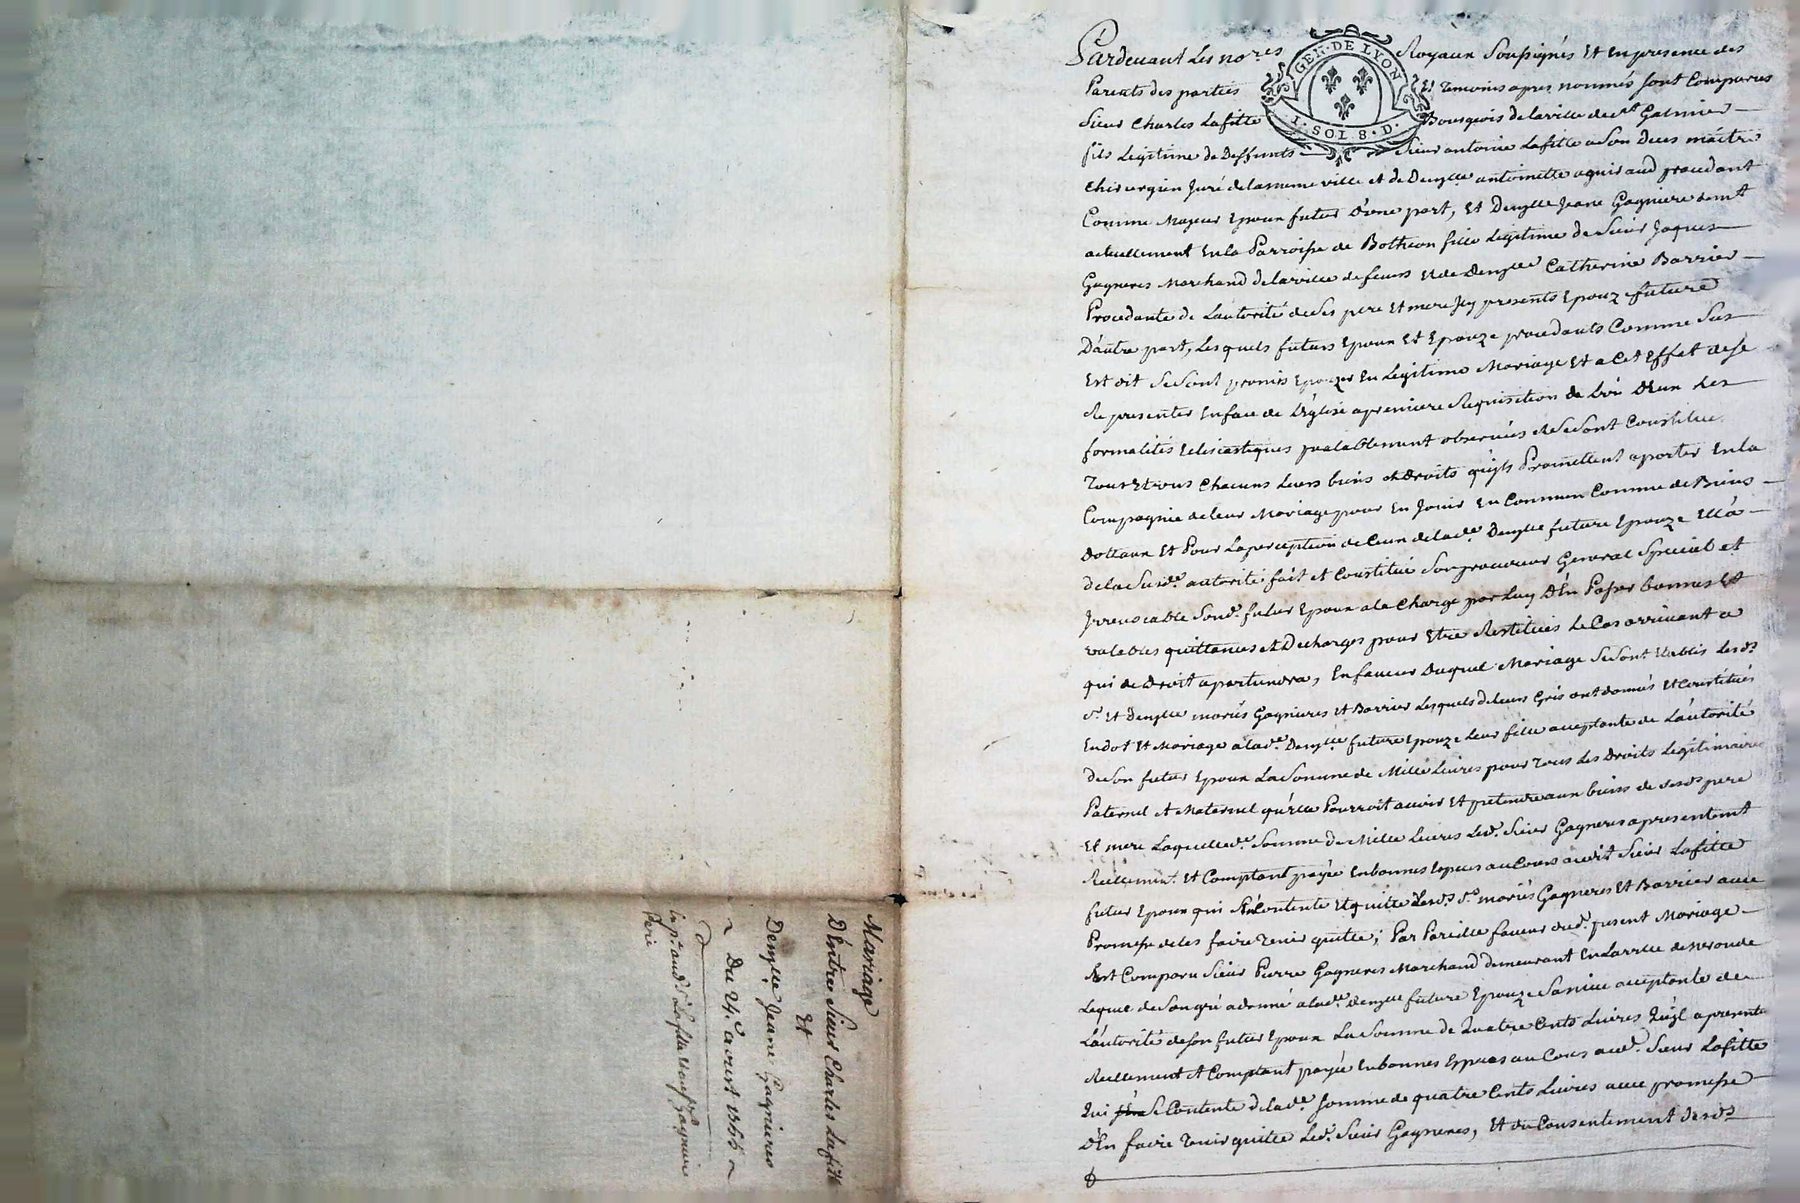 Pardeuant Les no.res Royaux Soussignés Et En presence des
GEN. DE LYON
I. SOL 8. D.
Parents des parties Et Temoins apres nommés sont Comparus
Sieur Charles Lafitte Bourgeois de la ville de st Galmier
fils Legitime de Deffunts Sieur antoine Lafitte a Son Deces maitre
Chirurgien Juré de la meme ville et de Demlle antoinette aguiraud procedant
Comme Majeur Epoux futur D'une part, Et Demlle Jeane Gagniere demt
actuellement En la Parroisse de Botheon fille Legitime de Sieur Jaques
Gagneres Marchand de la ville de feurs Et de Demlle Catherine Barrier
Procedante de L'autorité de Ses pere Et mere Icy presents Epouze future
D'autre part, Lesquels futurs Epoux Et Epouze procedants Comme Sus
Est dit Se Sont promis Epouzer En Legitime Mariage Et a Cet Effet de Se
Representer En face de L'Eglise a premiere Requisition de L'un D'Eux Les
formalités Eclesiastiques prealablement observées Se Sont Constitué
Tous Et uns Chacuns Leurs biens et Droits qu'ils Promettent aporter En la
Compagnie de leur Mariage pour En Jouir En Commun Comme de Biens
Dottaux Et Pour La perception de Ceux de lade. Demlle future Epouze Ella
de la Susde. autorité fait et Constitué Son procureur General Special et
Irrevocable Sond. futur Epoux a la Charge par Luy D'En Passer bonnes Et
valables quittances et Decharges pour Etre Restitués le Cas arrivant a
qui de Droit apartiendra, En faueur Duquel Mariage Se Sont Etablis Lesds
Sr. Et Demlle mariés Gagnieres Et Barrier Lesquels de leurs Grés ont donnés Et Constitués
En dot Et Mariage a lade. Demlle. future Epouze Leur fille acceptante de L'autorité
de Son futur Epoux La Somme de Mille Liures pour Tous Les Droits Legitimaires
Paternel et Maternel qu'elle Pourroit auoir Et pretendre aux biens de sesds pere
Et mere Laquellede. Somme de Mille Liures Led. Sieur Gagneres a presentemt
Reellemnt. Et Comptant payée En bonnes Especes au Cours audit Sieur Lafitte
futur Epoux qui S'En Contente Et quitte Lesds. Srs mariés Gagneres Et Barrier auec
Promesse de les faire Tenir quitte; Par Pareille faueur dud. present Mariage
Est Comparu Sieur Pierre Gagneres Marchand demeurant En La ville de Neronde
Lequel de Son gré a donné a lade. Demlle future Epouze Sa niece acceptante de
L'autorité de Son futur Epoux La Somme de Quatre Cents Liures Qu'il a presentet
Reellement et Comptant payée En bonnes Especes au Cours aud. Sieur Lafitte
Qui Se Contente de lade. Somme de quatre Cents Liures auec promesse
D'En faire Tenir quitte Led. Sieur Gagneres, Et du Consentement desds
Mariage
D'Entre Sieur Charles Lafitte
Et
Demlle Jeane Gagnieres
Du 24. aoust 1766